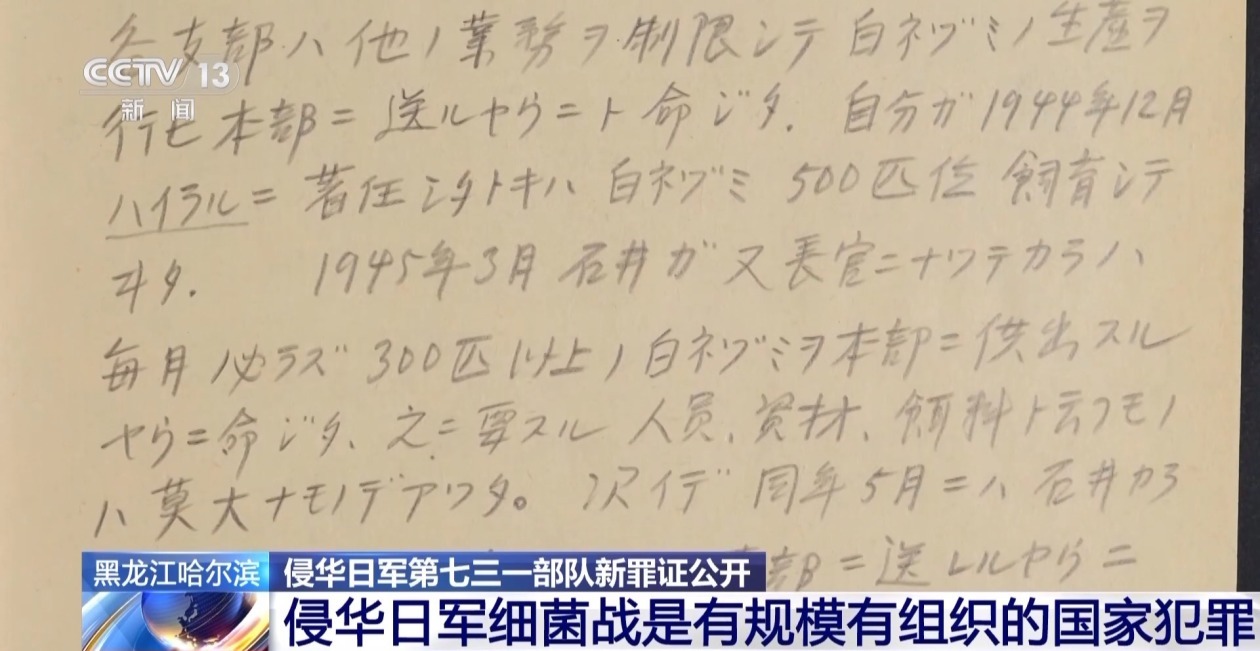 各支部ハ他ノ業務ヲ制限シテ白ネヅミノ生産ヲ
CCTV 13
新闻
行ヒ本部ニ送ルヤウニト命ジタ. 自分ガ1944年12月
ハイラルニ著任シタトキハ白ネヅミ500匹位飼育シテ
ヰタ. 1945年3月石井ガ又長官ニナツテカラハ、
毎月必ラズ300匹以上ノ白ネヅミヲ本部ニ供出スル
ヤウニ命ジタ、之ニ要スル人員、資材、飼料ト云フモノ
ハ莫大ナモノデアツタ。次イデ同年5月ニハ石井カラ
部ニ送レルヤウニ
黑龙江哈尔滨 侵华日军第七三一部队新罪证公开
侵华日军细菌战是有规模有组织的国家犯罪